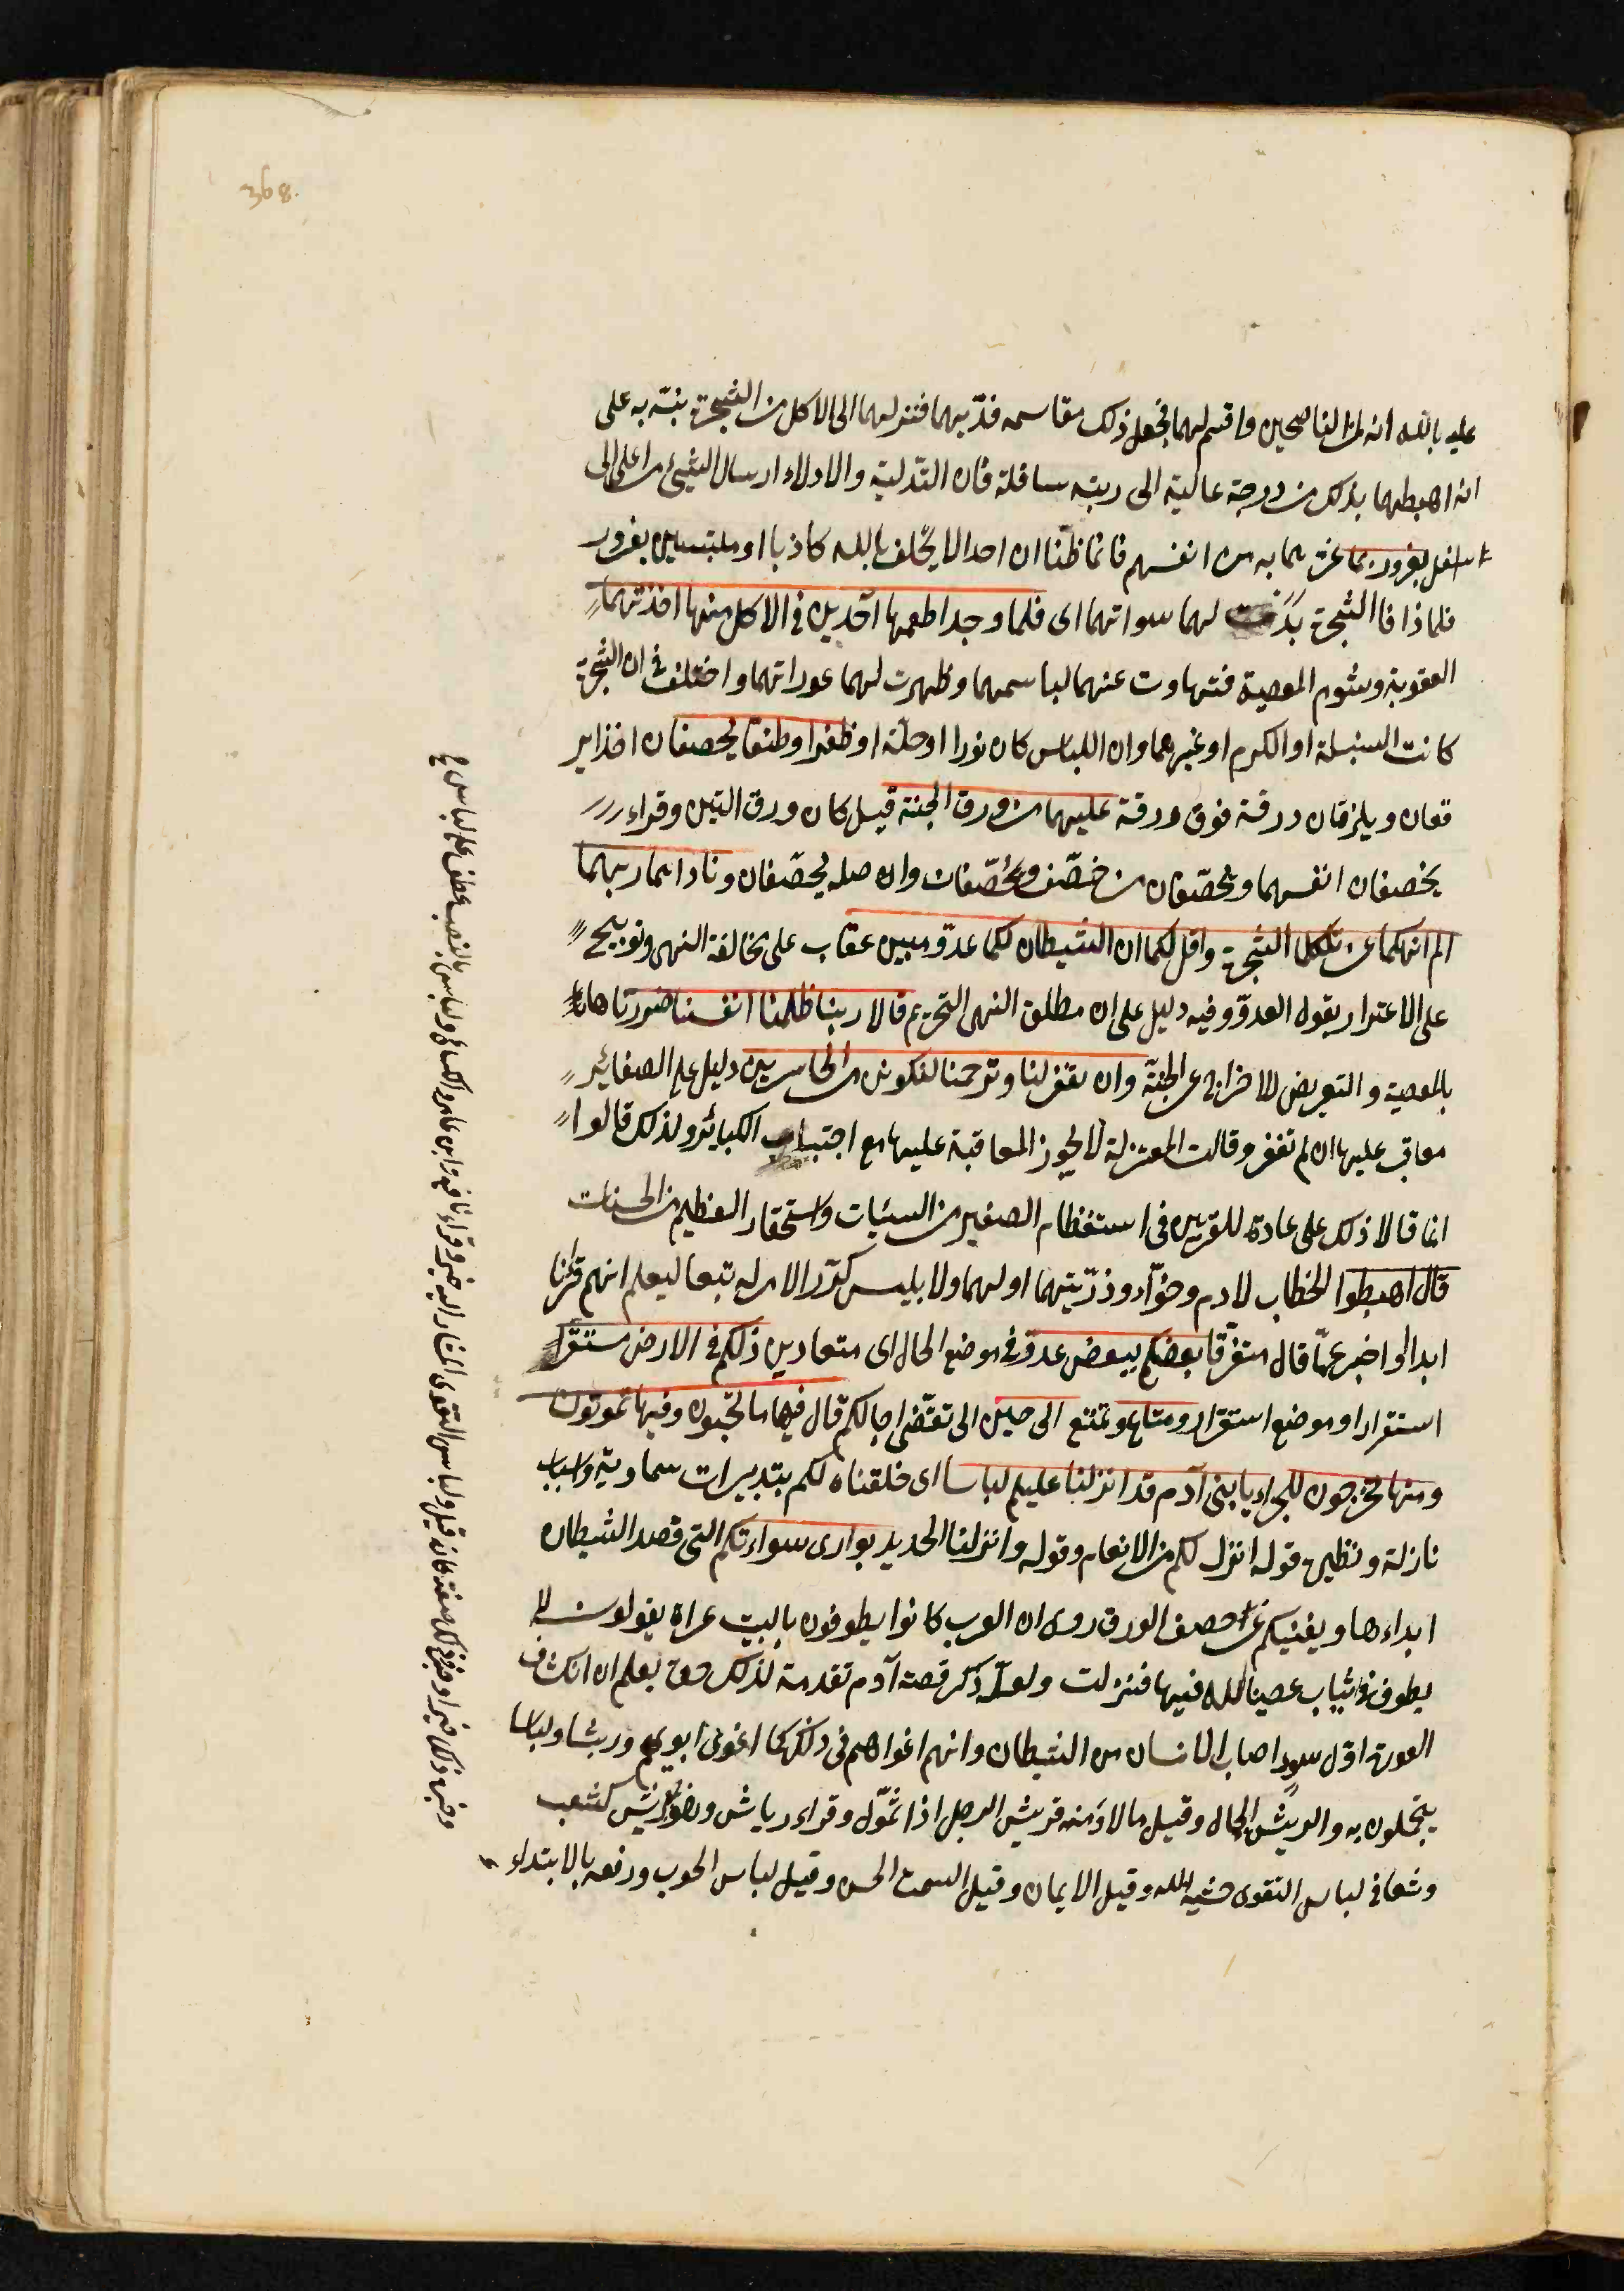 368.
عليه بالله انه لمن الناصحين واقسم لهما فجعل ذلك مقاسمه فدلّيهما فتنزلهما الى الاكل من الشجرة بنبّه به على
انه اهبطهما بذلك من درجة عالية الى رتبه سافلة فان التدلية والادلاء ارسال الشيئ من اعلى الى
اسفل بغرور بما غرّهما به من القسم فانما ظنّا ان احدا لا يحلف بالله كاذبا او ملتبسين بغرور
فلما ذاقا الشجرة بدت لهما سواتهما اى فلما وجدا طعمها آخذين فى الاكل منها اخذتهما
العقوبة وشوم المعصية فتهاوت عنهما لباسهما وظهرت لهما عوراتهما واختلف فى ان الشجرة
كانت السنبلة او الكرم او غيرهما وان اللباس كان نورا او حلّة او ظفرا وطفقا يخصفان اخذا ير
قعان ويلزقان ورقة فوق ورقة عليهما من ورق الجنة قيل كان ورق التين وقراء
يخصفان انفسهما ويخصّفان من خصّف ويخصّفان وان صله يختصفان وناداهما ربهما
الم انهكما عن تلكما الشجرة واقل لكما ان الشيطان لكما عدو مبين عقاب على مخالفة النهى وتوبيخ
على الاغترار بقول العدوّ وفيه دليل على ان مطلق النهى التحريم قالا ربنا ظلمنا انفسنا ضررناها
بالمعصية والتعريض للاخراج عن الجنّة وان لم تغفر لنا وترحمنا لنكونن من الخاسرين دليل على الصغائر
معاقب عليها ان لم تغفر وقالت المعتزلة لا يجوز المعاقبة عليها مع اجتناب الكبائر ولذلك قالوا
انما قالا ذلك على عادة المقربين فى استعظام الصغير من السيئات واستحقار العظيم من الحسنات
قال اهبطوا الخطاب لادم وحوّاء وذرّيتهما او لهما ولابليس كرّر الامر له تبعا ليعلم انهم قرنا
ابدا او اخبر عمّا قال متفرّقا بعضكم لبعض عدوّ فى موضع الحال اى متعادين ولكم فى الارض مستقرّ
استقرار او موضع استقرار ومتاع وتمتع الى حين الى تقضّى اجالكم قال فيها تحيون وفيها تموتون
ومنها تخرجون للجزاء يا بنى آدم قد انزلنا عليكم لباسا اى خلقناه لكم بتدبيرات سماوية واسباب
نازلة ونظيره قوله انزل لكم من الانعام وقوله وانزلنا الحديد يوارى سواءتكم التى قصد الشيطان
ابداءها ويغنيكم عن خصف الورق روى ان العرب كانوا يطوفون بالبيت عراة يقولون لا
يطوف فى ثياب عصينا الله فيها فنزلت ولعلّه ذكر قصة آدم تقدمة لذلك حتى يعلم ان انكشاف
العورة اوّل سوء اصاب الانسان من الشيطان وانهم اغواهم فى ذلك كما اغوى ابويهم وريشا ولباسا
يتجملون به والريش الجمال وقيل مالا ومنه تريش الرجل اذا تموّل وقراء رياشا وهو جمع ريش كشعب
وشعاب ولباس التقوى خشية الله وقيل الايمان وقيل السمت الحسن وقيل لباس الحرب ورفعه بالابتداء
وخبره ذلك خير او خير وذلك صفته كانه قيل ولباس التقوى المشار اليه خير وقراء نافع وابن عامر والكسائى ولباس بالنصب عطف على لباسا